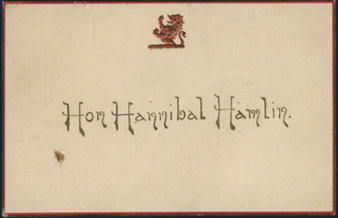 Hon Hannibal Hamlin.